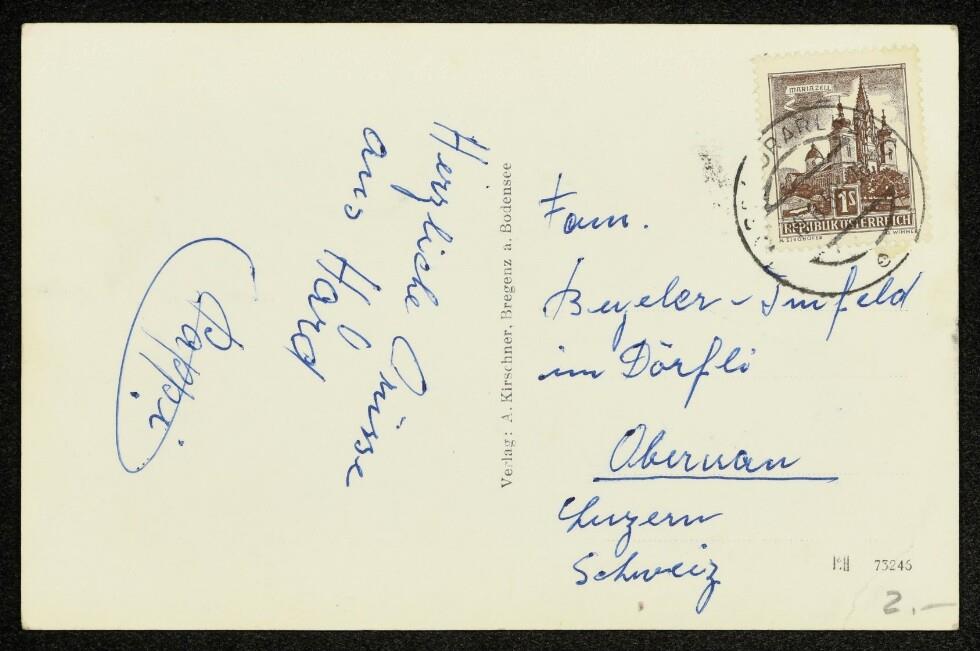 Herzliche Grüsse
aus Hard
Pappi
Verlag: A. Kirschner, Bregenz a. Bodensee
MARIAZELL
1S
REPUBLIK ÖSTERREICH
Fam.
Beyeler - Imfeld
im Dörfli
Obernau
Luzern
Schweiz
73246
2.-